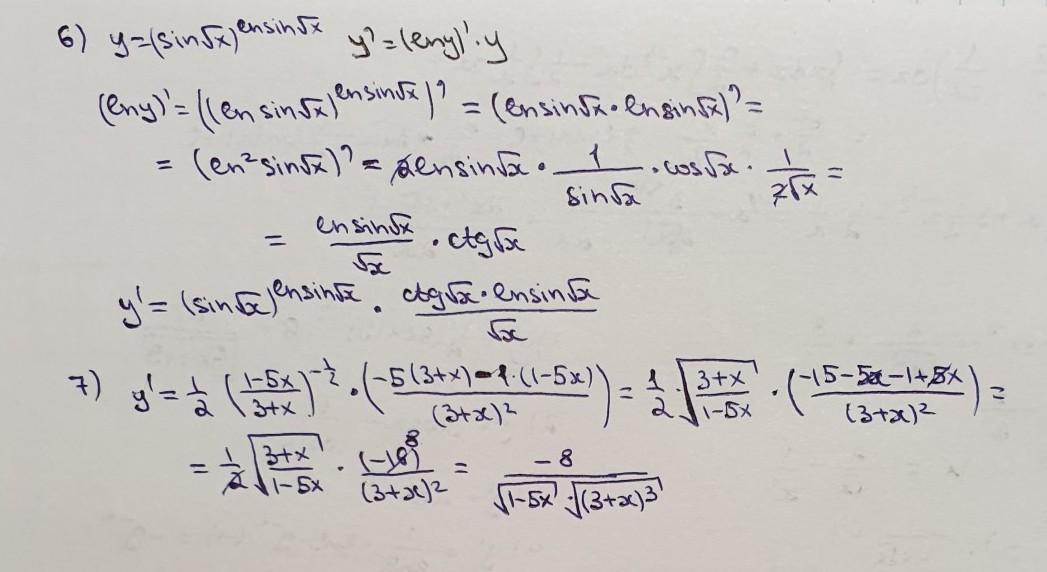 6) y=(sin√x)^(ln sin√x) y'=(ln y)'·y
(ln y)'=((ln sin√x)^(ln sin√x))'=(ln sin√x·ln sin√x)'=
=(ln² sin√x)'=2 ln sin√x·1/(sin√x)·cos√x·1/(2√x)=
=(ln sin√x)/√x·ctg√x
y'=(sin√x)^(ln sin√x)·(ctg√x·ln sin√x)/√x
7) y'=1/2((1-5x)/(3+x))^(-1/2)·((-5(3+x)-1·(1-5x))/(3+x)²)=1/2√((3+x)/(1-5x))·((-15-5x-1+5x)/(3+x)²)=
=1/2√((3+x)/(1-5x))·(-16)8/(3+x)²=-8/(√(1-5x)·√((3+x)³))